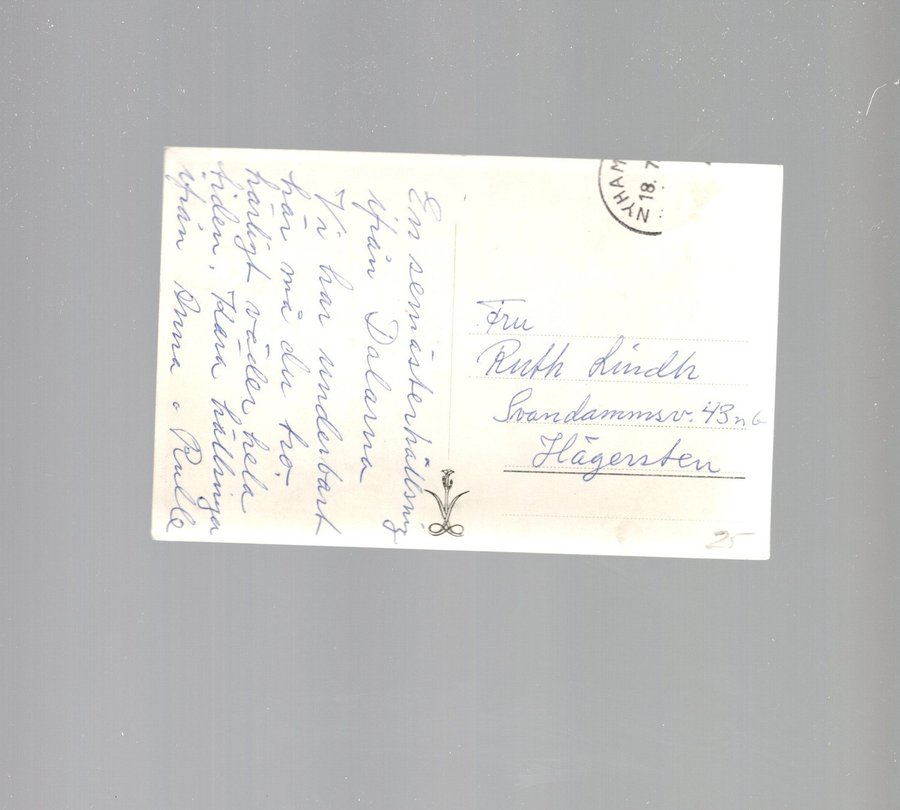 En semästerhällsnig
ifrån Dalarna
Vi har underbart
här må du tro.
härligt väder hela
tiden. Kära hällninga
ifrån Anna o Rulle
NYHAM
18. 7
Fru
Ruth Lindh
Svandammsv. 43 nb
Hägersten
25